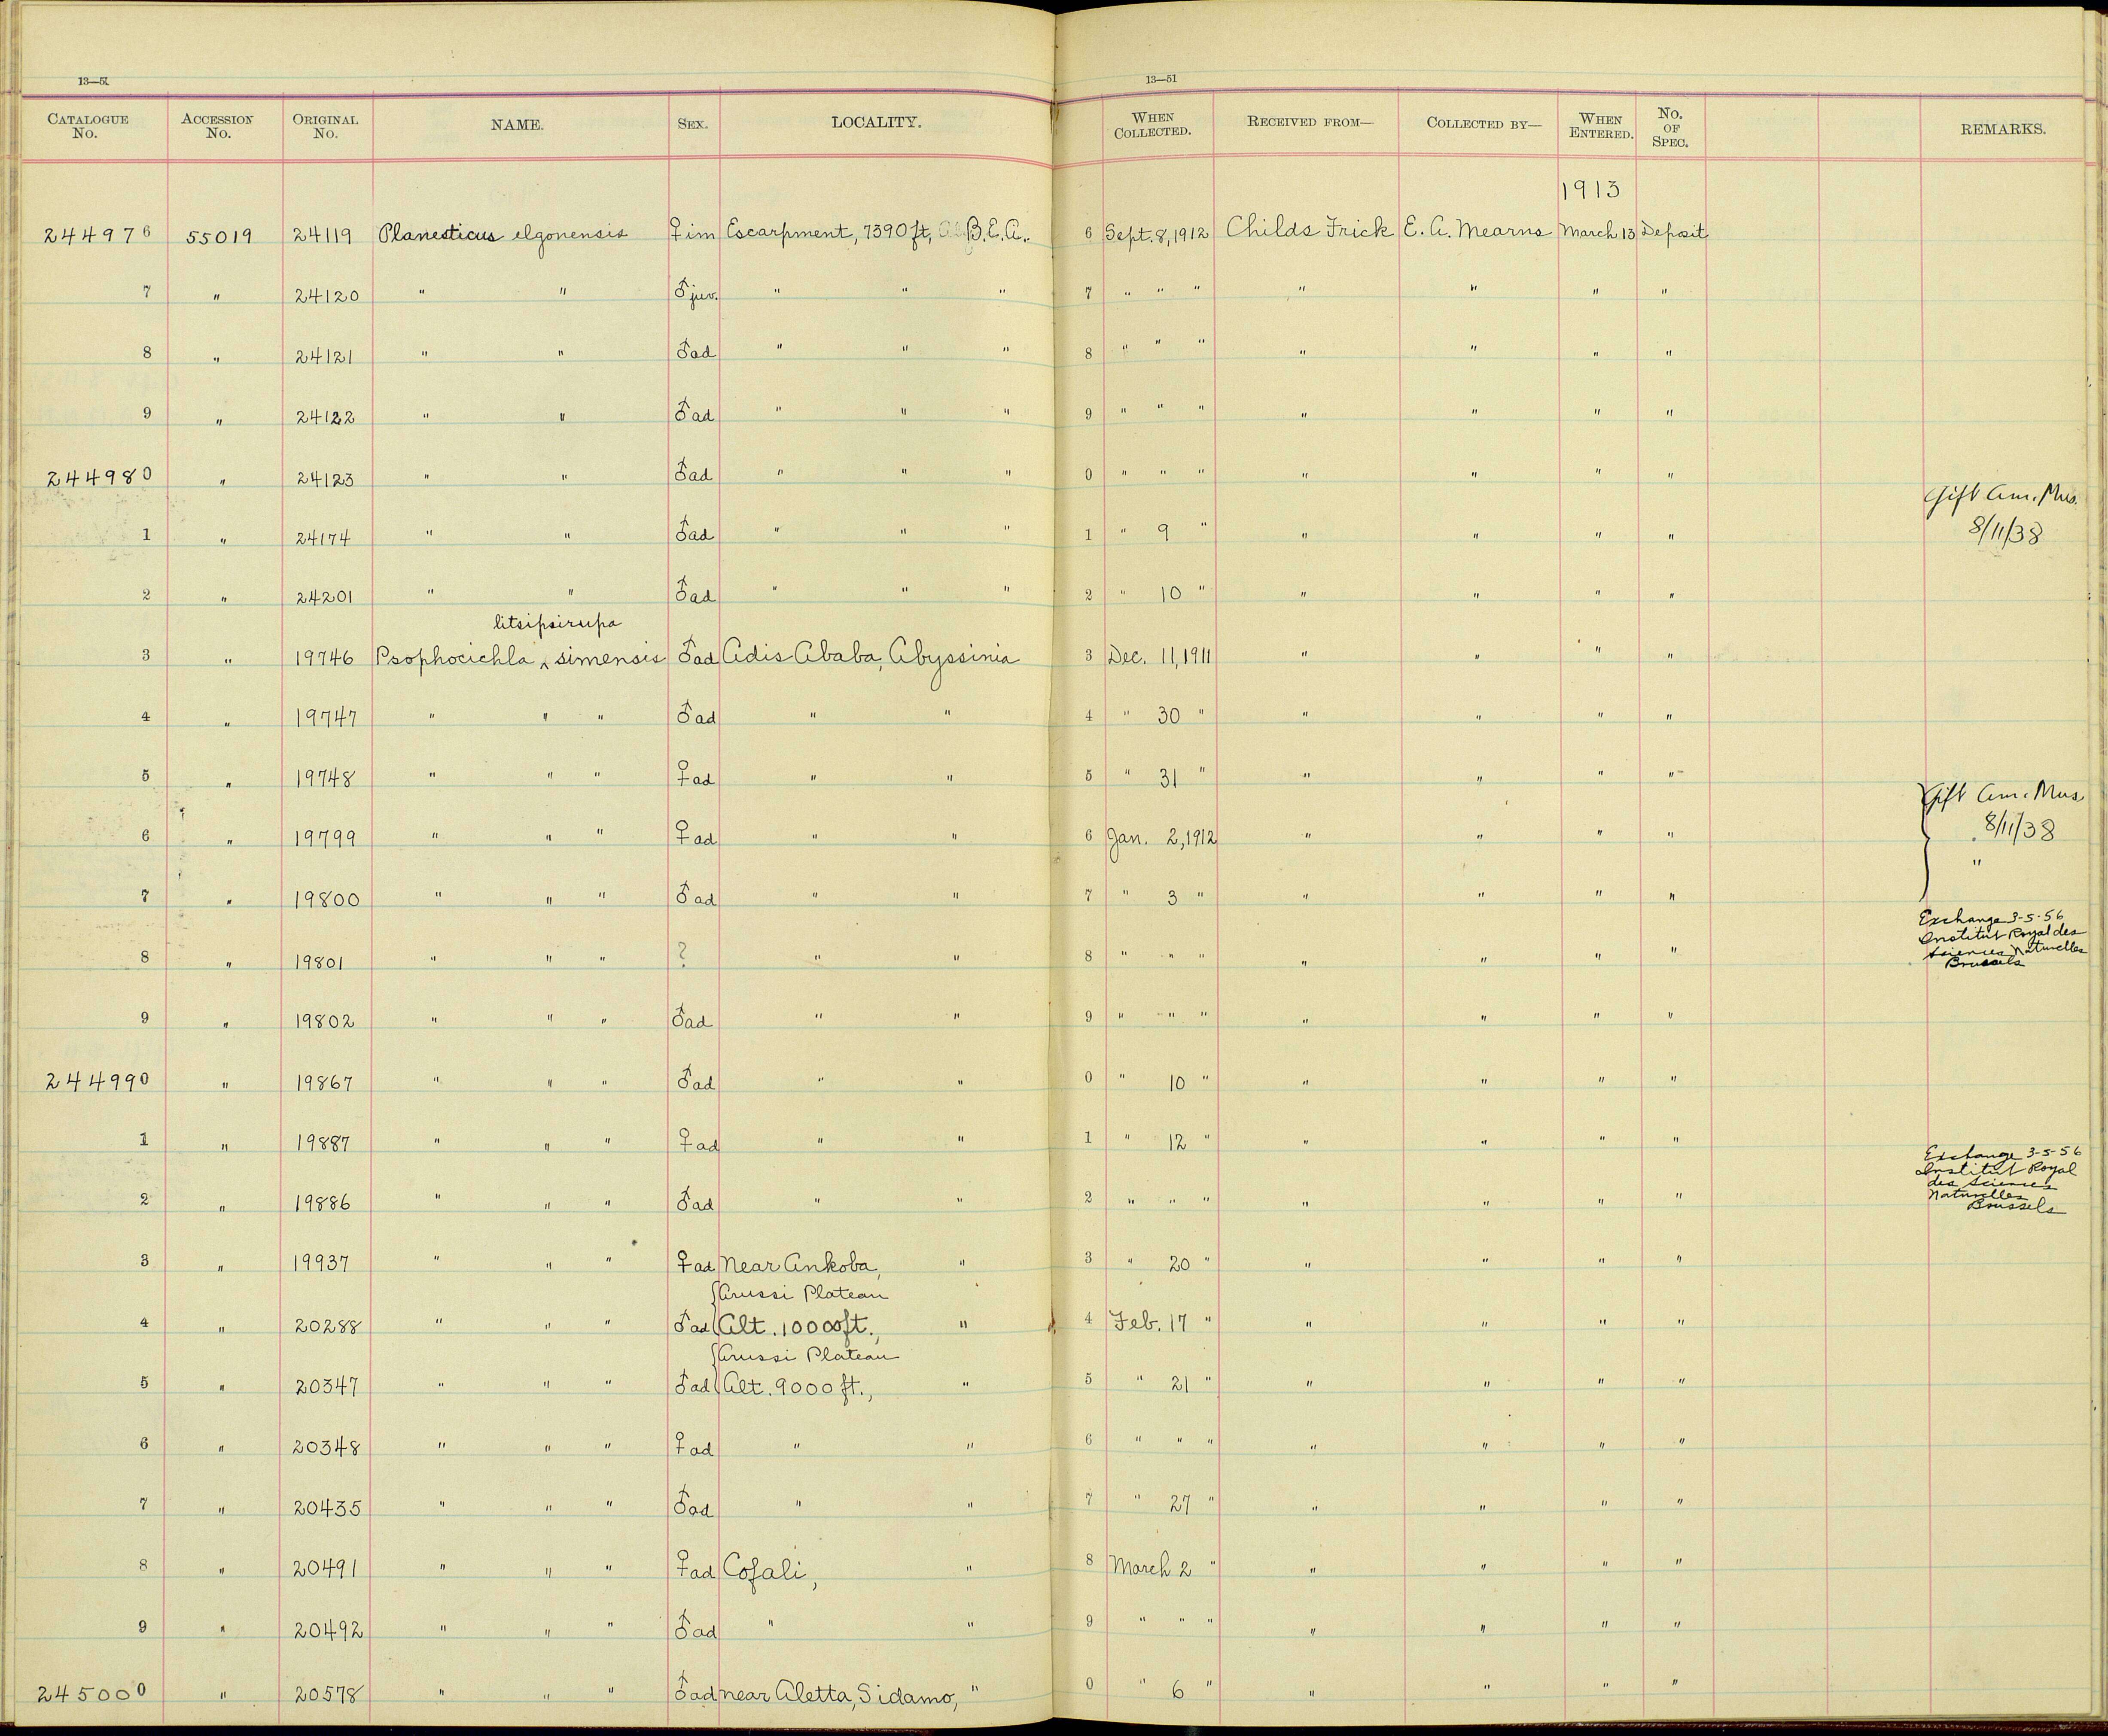 13—51 13—51
CATALOGUE No. ACCESSION No. ORIGINAL No. NAME. SEX. LOCALITY. WHEN COLLECTED. RECEIVED FROM— COLLECTED BY— WHEN ENTERED. No. OF SPEC. REMARKS.
1913
244976 55019 24119 Planesticus elgonensis ♀ im Escarpment, 7390 ft, B.E.A. 6 Sept. 8, 1912 Childs Frick E. A. Mearns March 13 Deposit
7 " 24120 " " ♂ juv. " " " 7 " " " " " " "
8 " 24121 " " ♂ ad " " " 8 " " " " " " "
9 " 24122 " " ♂ ad " " " 9 " " " " " " "
244980 " 24123 " " ♂ ad " " " 0 " " " " " " "
Gift Am. Mus.
1 " 24174 " " ♂ ad " " " 1 " 9 " " " " " 8/11/38
2 " 24201 " " ♂ ad " " " 2 " 10 " " " " "
litsipsirupa
3 " 19746 Psophocichla ^ simensis ♂ ad Adis Ababa, Abyssinia 3 Dec. 11, 1911 " " " "
4 " 19747 " " " ♂ ad " " 4 " 30 " " " " "
5 " 19748 " " " ♀ ad " " 5 " 31 " " " " "
Gift Am. Mus
6 " 19799 " " " ♀ ad " " 6 Jan. 2, 1912 " " " " 8/11/38
"
7 " 19800 " " " ♂ ad " " 7 " 3 " " " " "
Exchange 3-5-56
Institut Royal des
8 " 19801 " " " ? " " 8 " " " " " " " Sciences Naturelles
Brussels
9 " 19802 " " " ♂ ad " " 9 " " " " " " "
244990 " 19867 " " " ♂ ad " " 0 " 10 " " " " "
1 " 19887 " " " ♀ ad " " 1 " 12 " " " " "
Exchange 3-5-56
Institut Royal
des Sciences
2 " 19886 " " " ♂ ad " " 2 " " " " " " " Naturelles
Brussels
3 " 19937 " " " ♀ ad Near Ankoba, " 3 " 20 " " " " "
{Arussi Plateau
4 " 20288 " " " ♂ ad Alt. 10000 ft., " 4 Feb. 17 " " " " "
{Arussi Plateau
5 " 20347 " " " ♂ ad Alt. 9000 ft., " 5 " 21 " " " " "
6 " 20348 " " " ♀ ad " " 6 " " " " " " "
7 " 20435 " " " ♂ ad " " 7 " 27 " " " " "
8 " 20491 " " " ♀ ad Cofali, " 8 March 2 " " " " "
9 " 20492 " " " ♂ ad " " 9 " " " " " " "
245000 " 20578 " " " ♂ ad near Aletta, Sidamo, " 0 " 6 " " " " "